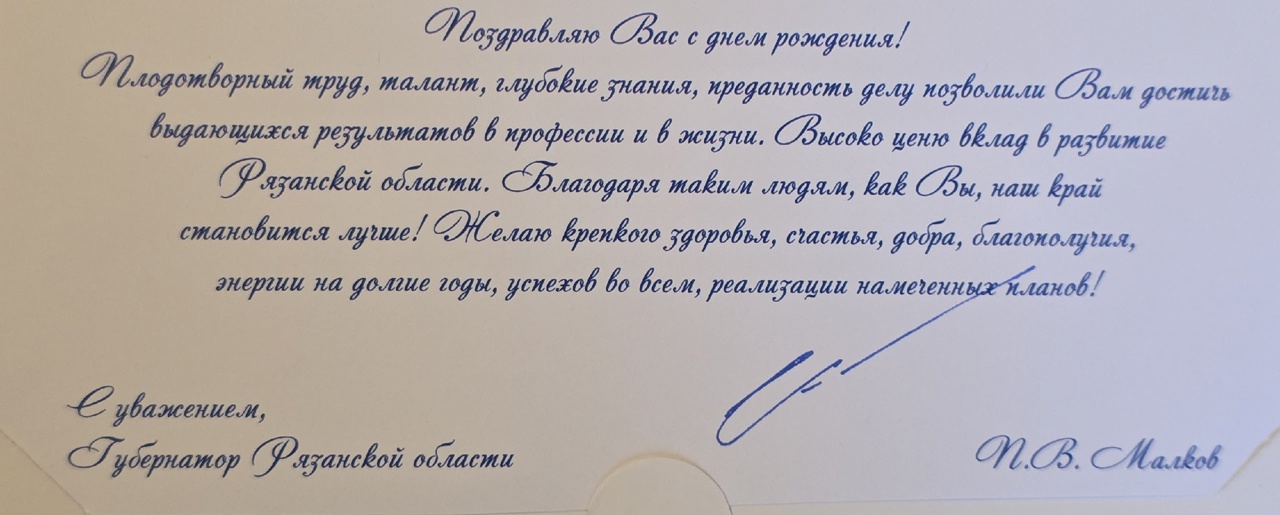 Поздравляю Вас с днем рождения!
Плодотворный труд, талант, глубокие знания, преданность делу позволили Вам достичь
выдающихся результатов в профессии и в жизни. Высоко ценю вклад в развитие
Рязанской области. Благодаря таким людям, как Вы, наш край
становится лучше! Желаю крепкого здоровья, счастья, добра, благополучия,
энергии на долгие годы, успехов во всем, реализации намеченных планов!
С уважением,
Губернатор Рязанской области
П.В. Малков